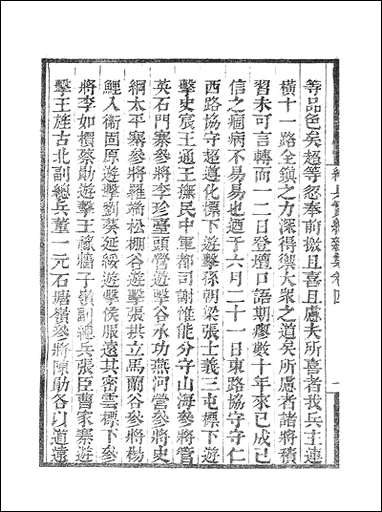 等品色矣超等忽奉前檄且喜且慮夫所喜者我兵主連
橫十一路全鎮之力深得禦大衆之道矣所慮者諸將積
習未可言轉而一二日登壇口語期瘳數十年來已成已
信之痼病不易易也廼于六月二十一日東路協守守仁
西路協守超遵化標下遊擊孫朝梁張士義三屯標下遊
擊史宸王通王撫民中軍都司謝惟能分守山海參將管
英石門寨參將李珍臺頭營遊擊谷承功燕河營參將史
綱太平寨參將羅端松棚谷遊擊張拱立馬蘭谷參將楊
鯉入衞固原遊擊劉葵延綏遊擊侯服遠其密雲標下參
將李如櫝蔡勛遊擊王祿牆子嶺副總兵張臣曹家寨遊
擊王旌古北副總兵董一元石塘嶺參將陳勛各以道遠
練兵實紀雜集卷四
一